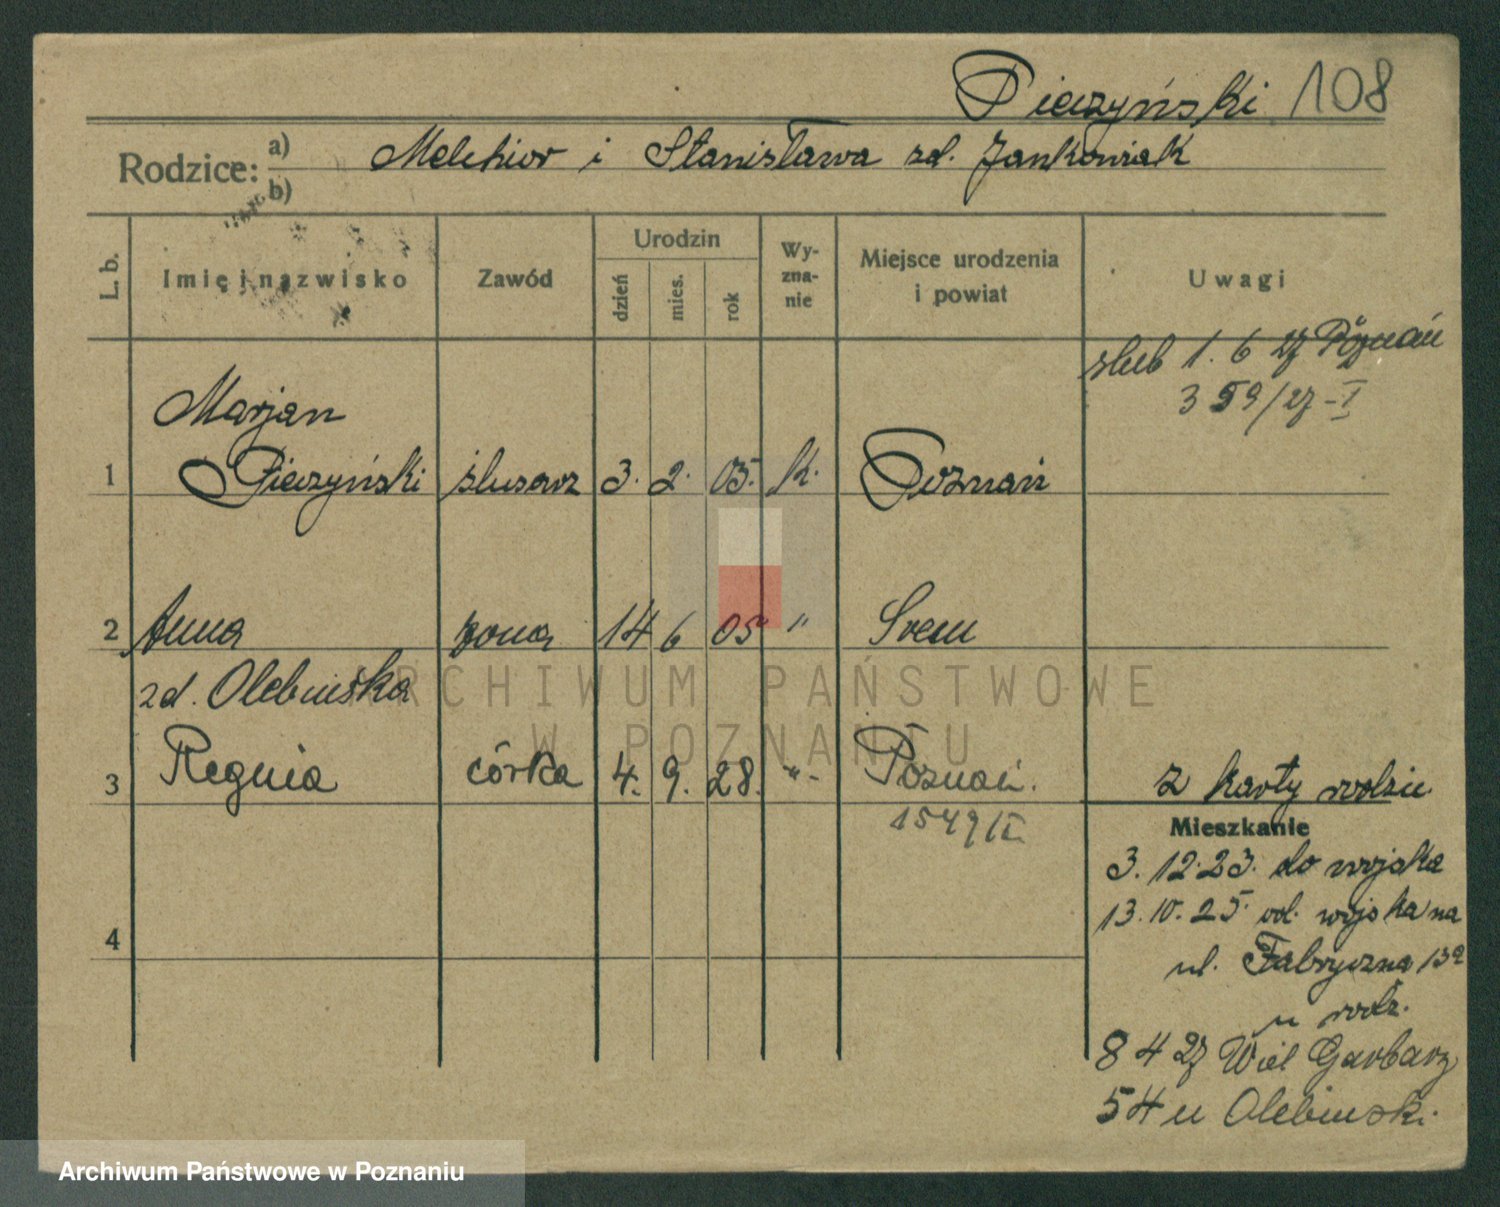 Pieczyński 108
Rodzice: a) Melchior i Stanisława zd. Jankowiak
b)
L. b. Imię i nazwisko Zawód Urodzin dzień mies. rok Wy-zna-nie Miejsce urodzenia i powiat Uwagi
ślub 1. 6 27 Poznań
359/27-I
Marjan
1 Pieczyński ślusarz 3. 2. 05. k. Poznań
2 Anna żona 14 6 05 " Srem
zd. Olebińska
3 Regina córka 4. 9. 28. -"- Poznań. z karty rodzic
1549/II
Mieszkanie
3. 12. 23. do wojska
13. 10. 25. od. wojska na
4
ul. Fabryczna 13a
u rodz.
8 4 27 Wiel Garbary
54 u Olebiński.
ARCHIWUM PAŃSTWOWE
W POZNANIU
Archiwum Państwowe w Poznaniu